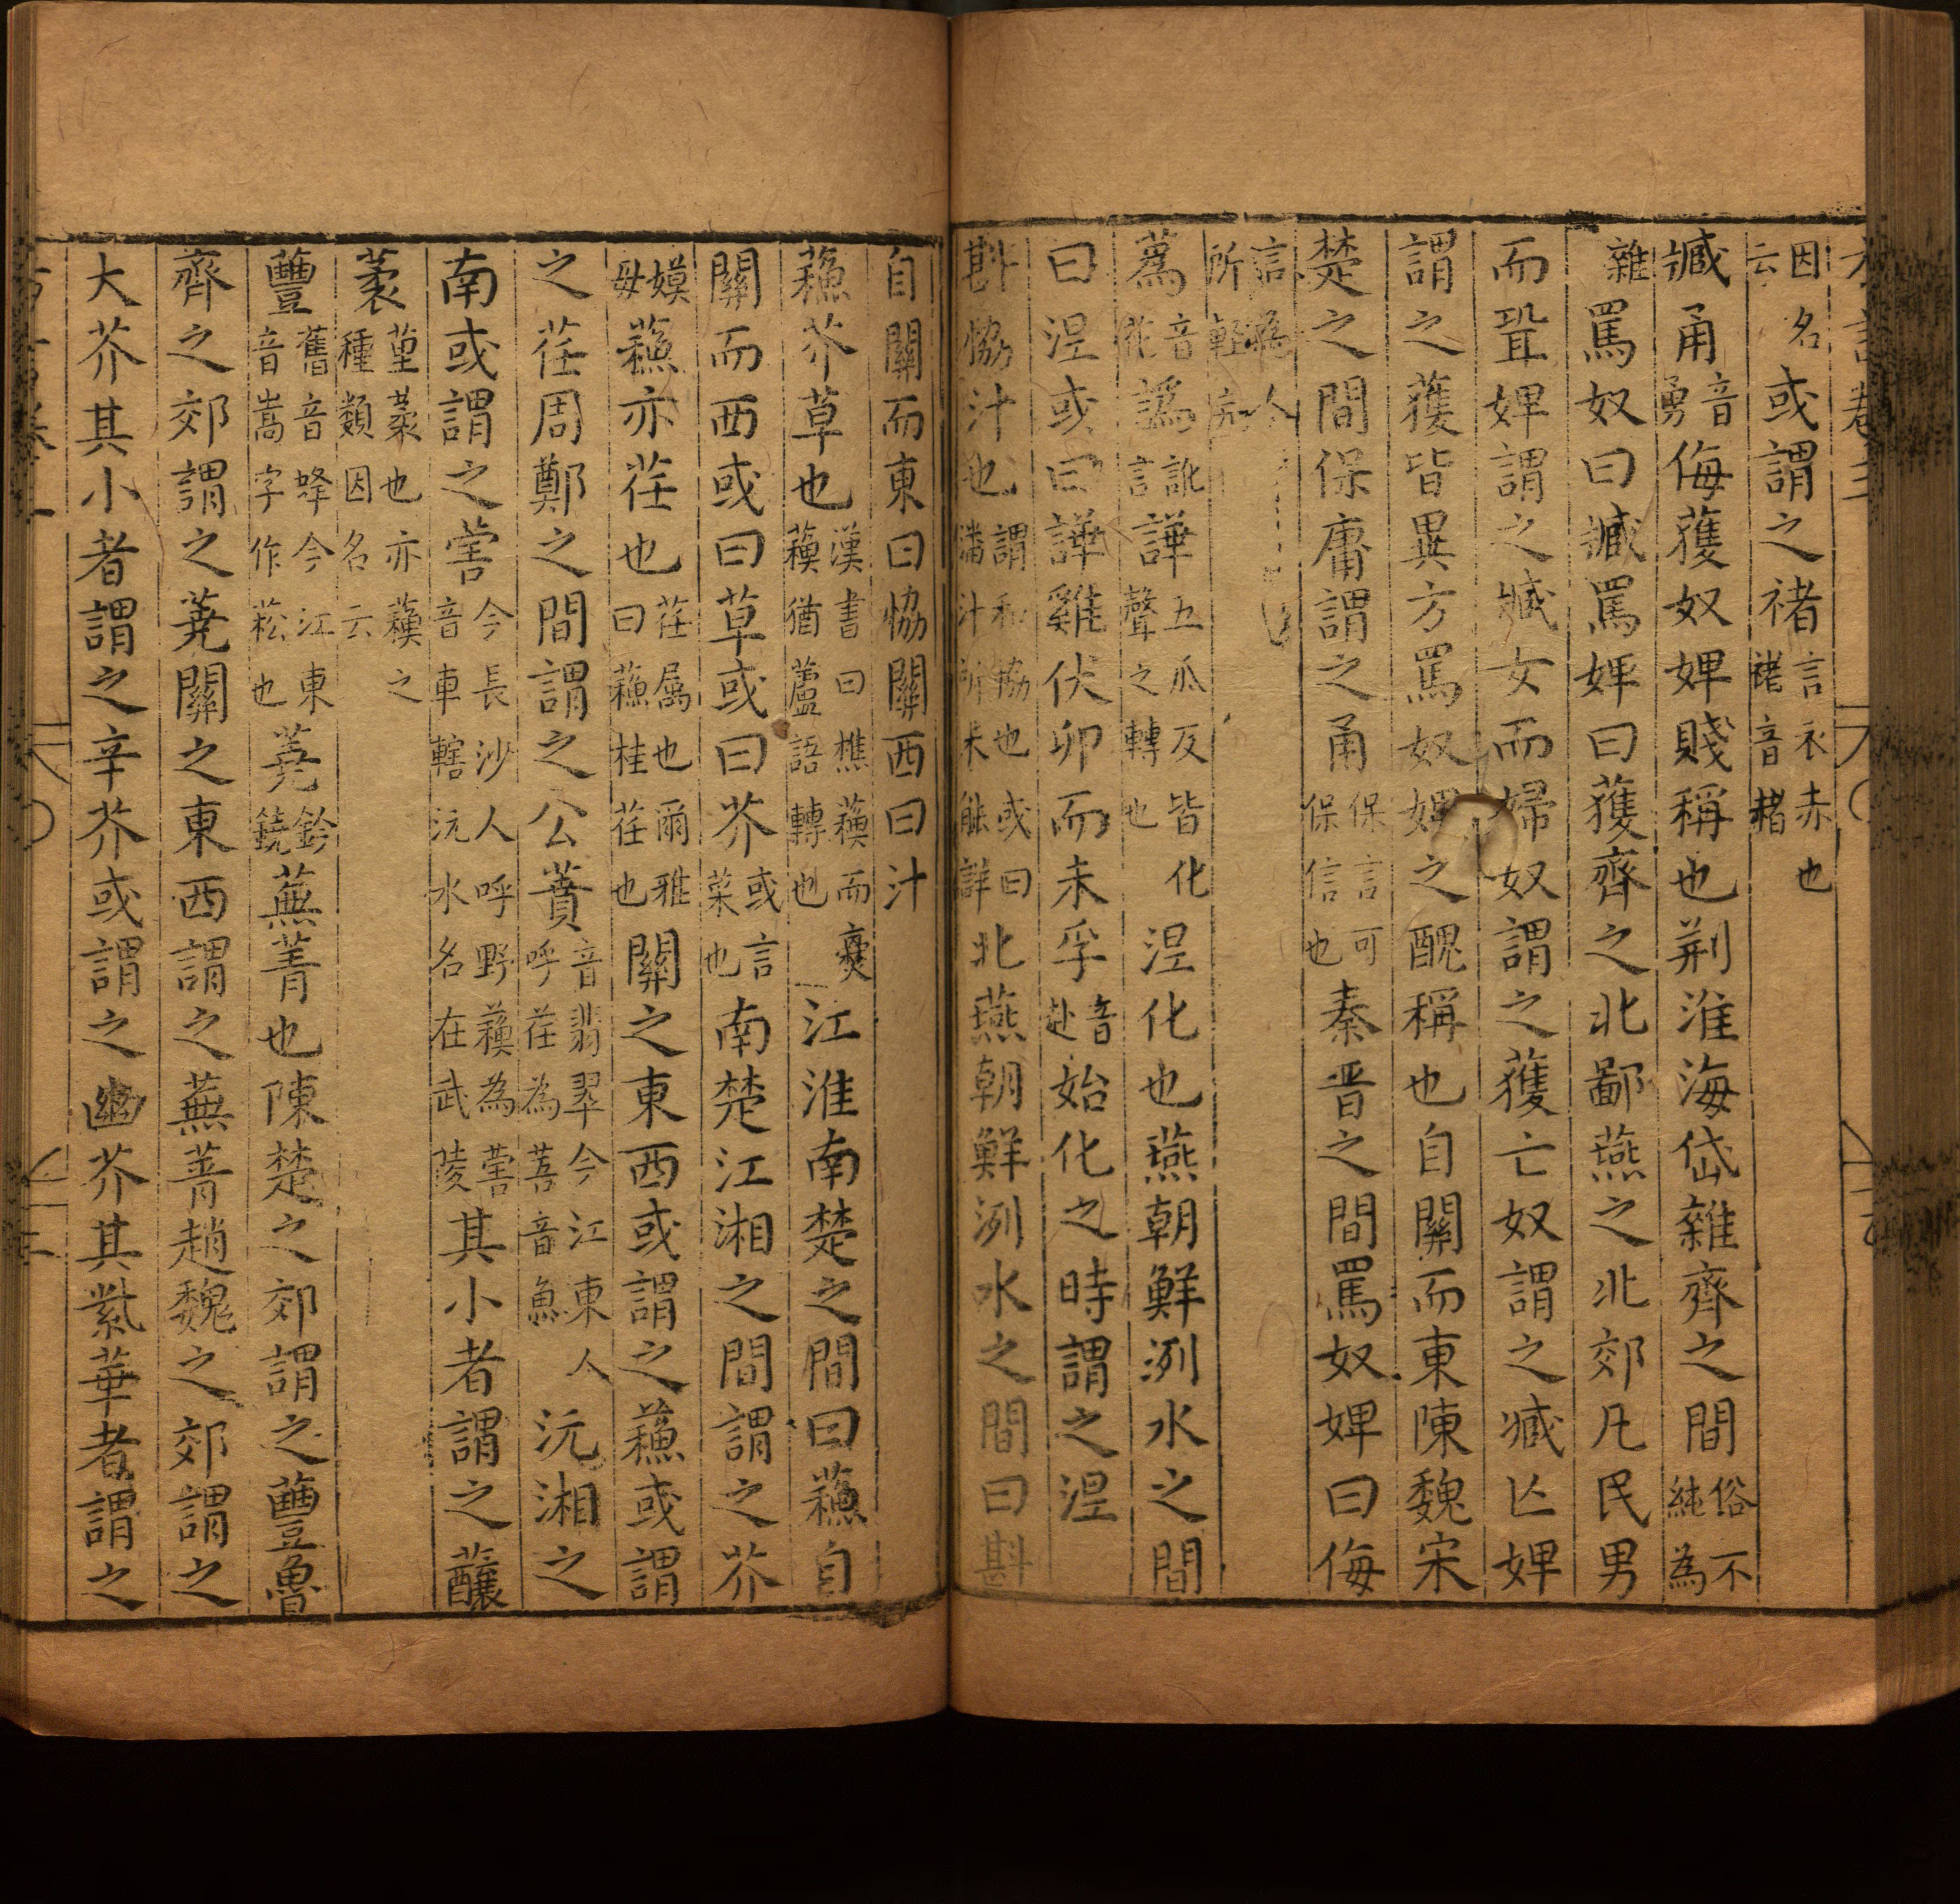 因名云或謂之褚言衣赤也褚音赭
臧甬音勇侮獲奴婢賤稱也荆淮海岱雜齊之間俗不純為
雜罵奴曰臧罵婢曰獲齊之北鄙燕之北郊凡民男
而聓婢謂之臧女而婦奴謂之獲亡奴謂之臧亡婢
謂之獲皆異方罵奴婢之醜稱也自關而東陳魏宋
楚之間保庸謂之甬保言可保信也秦晋之間罵奴婢曰侮
言為人所輕
蔿音花譌訛言譁五瓜反皆化聲之轉也涅化也燕朝鮮洌水之間
曰涅或曰譁雞伏卵而未孚音赴始化之時謂之涅
斟協汁也謂和協也或曰潘汁所未能詳北燕朝鮮洌水之間曰斟
自關而東曰協關西曰汁
蘇芥草也漢書曰樵蘇而爨蘇猶蘆語轉也江淮南楚之間曰蘇自
關而西或曰草或曰芥或言菜也南楚江湘之間謂之芥
嫫母蘇亦荏也荏屬也爾雅曰蘇桂荏也關之東西或謂之蘇或謂
之荏周鄭之間謂之公蕡音翡翠今江東人呼荏為菩音魚沅湘之
南或謂之䓔今長沙人呼野蘇為䓔音車轄沅水名在武陵其小者謂之釀
葇菫葇也亦蘇之種類因名云
蘴舊音蜂今江東音嵩字作菘也蕘鈴鐃蕪菁也陳楚之郊謂之蘴魯
齊之郊謂之蕘關之東西謂之蕪菁趙魏之郊謂之
大芥其小者謂之辛芥或謂之幽芥其紫華者謂之